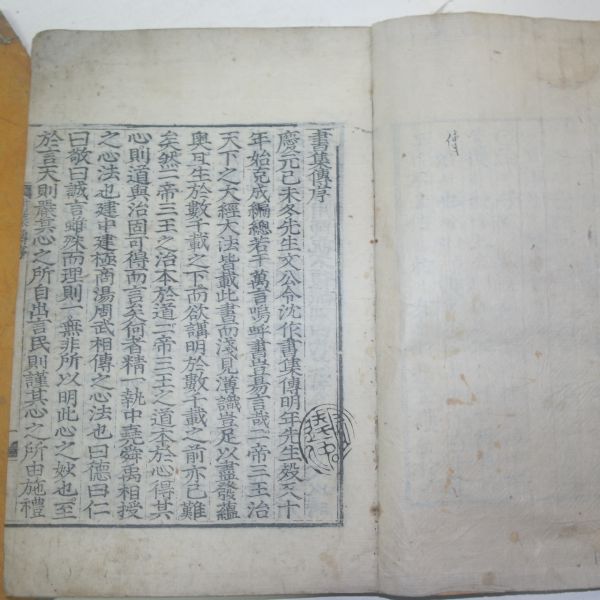 書集傳序
慶元己未冬先生文公令沈作書集傳明年先生歿又十
年始克成編總若干萬言嗚呼書豈易言哉二帝三王治
天下之大經大法皆載此書而淺見薄識豈足以盡發蘊
奧且生於數千載之下而欲講明於數千載之前亦已難
矣然二帝三王之治本於道二帝三王之道本於心得其
心則道與治固可得而言矣何者精一執中堯舜禹相授
之心法也建中建極商湯周武相傳之心法也曰德曰仁
曰敬曰誠言雖殊而理則一無非所以明此心之妙也至
於言天則嚴其心之所自出言民則謹其心之所由施禮